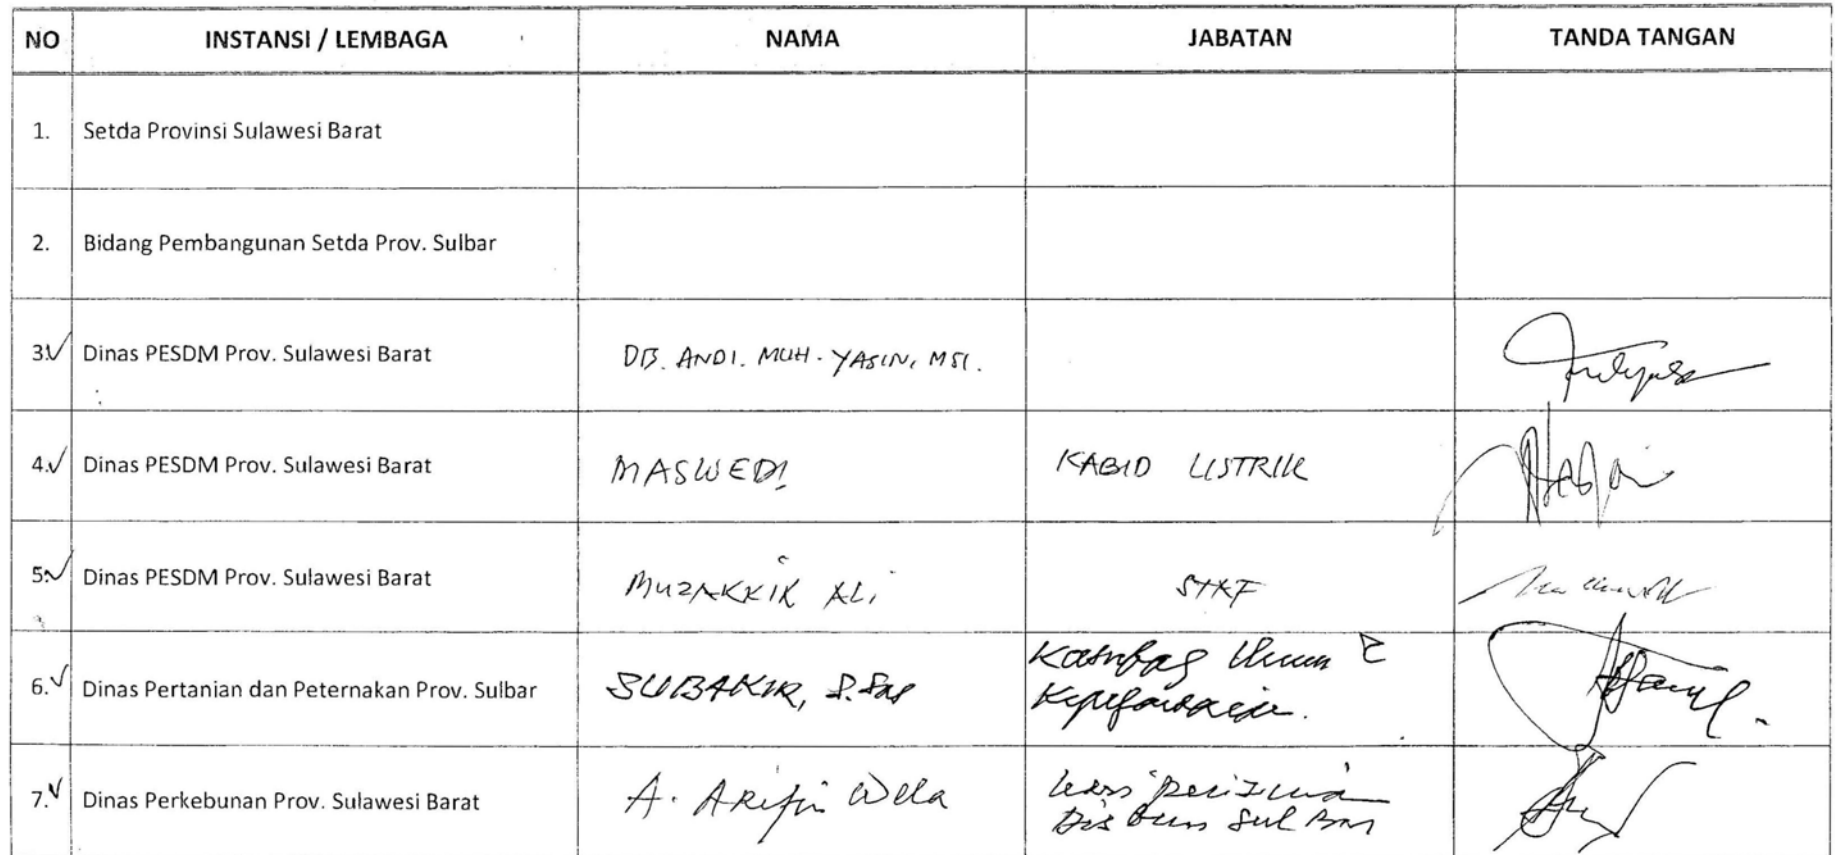 NO INSTANSI / LEMBAGA NAMA JABATAN TANDA TANGAN
1. Setda Provinsi Sulawesi Barat
2. Bidang Pembangunan Setda Prov. Sulbar
3. Dinas PESDM Prov. Sulawesi Barat DR. ANDI. MUH. YASIN, MSI.
4. Dinas PESDM Prov. Sulawesi Barat MASWEDI KABID LISTRIK
5. Dinas PESDM Prov. Sulawesi Barat MUZAKKIR ALI STAF
6. Dinas Pertanian dan Peternakan Prov. Sulbar SUBAKIR, S.Sos Kasubbag Umum &
Kepegawaian.
7. Dinas Perkebunan Prov. Sulawesi Barat A. ARifin Wela
Disbun SulBar